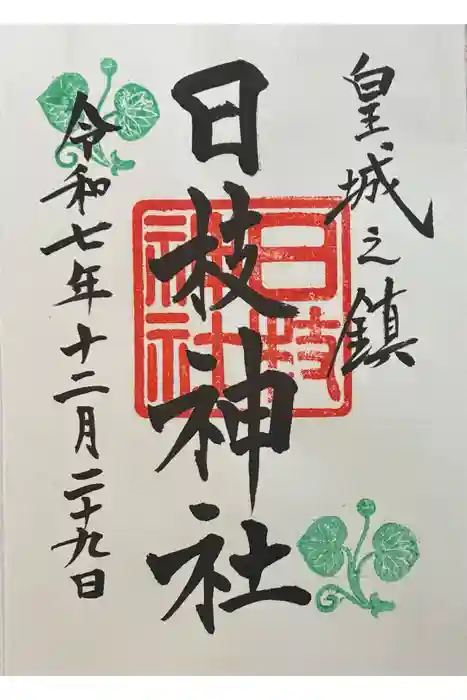 皇城之鎮
日枝神社
日枝神社
令和七年十二月二十九日